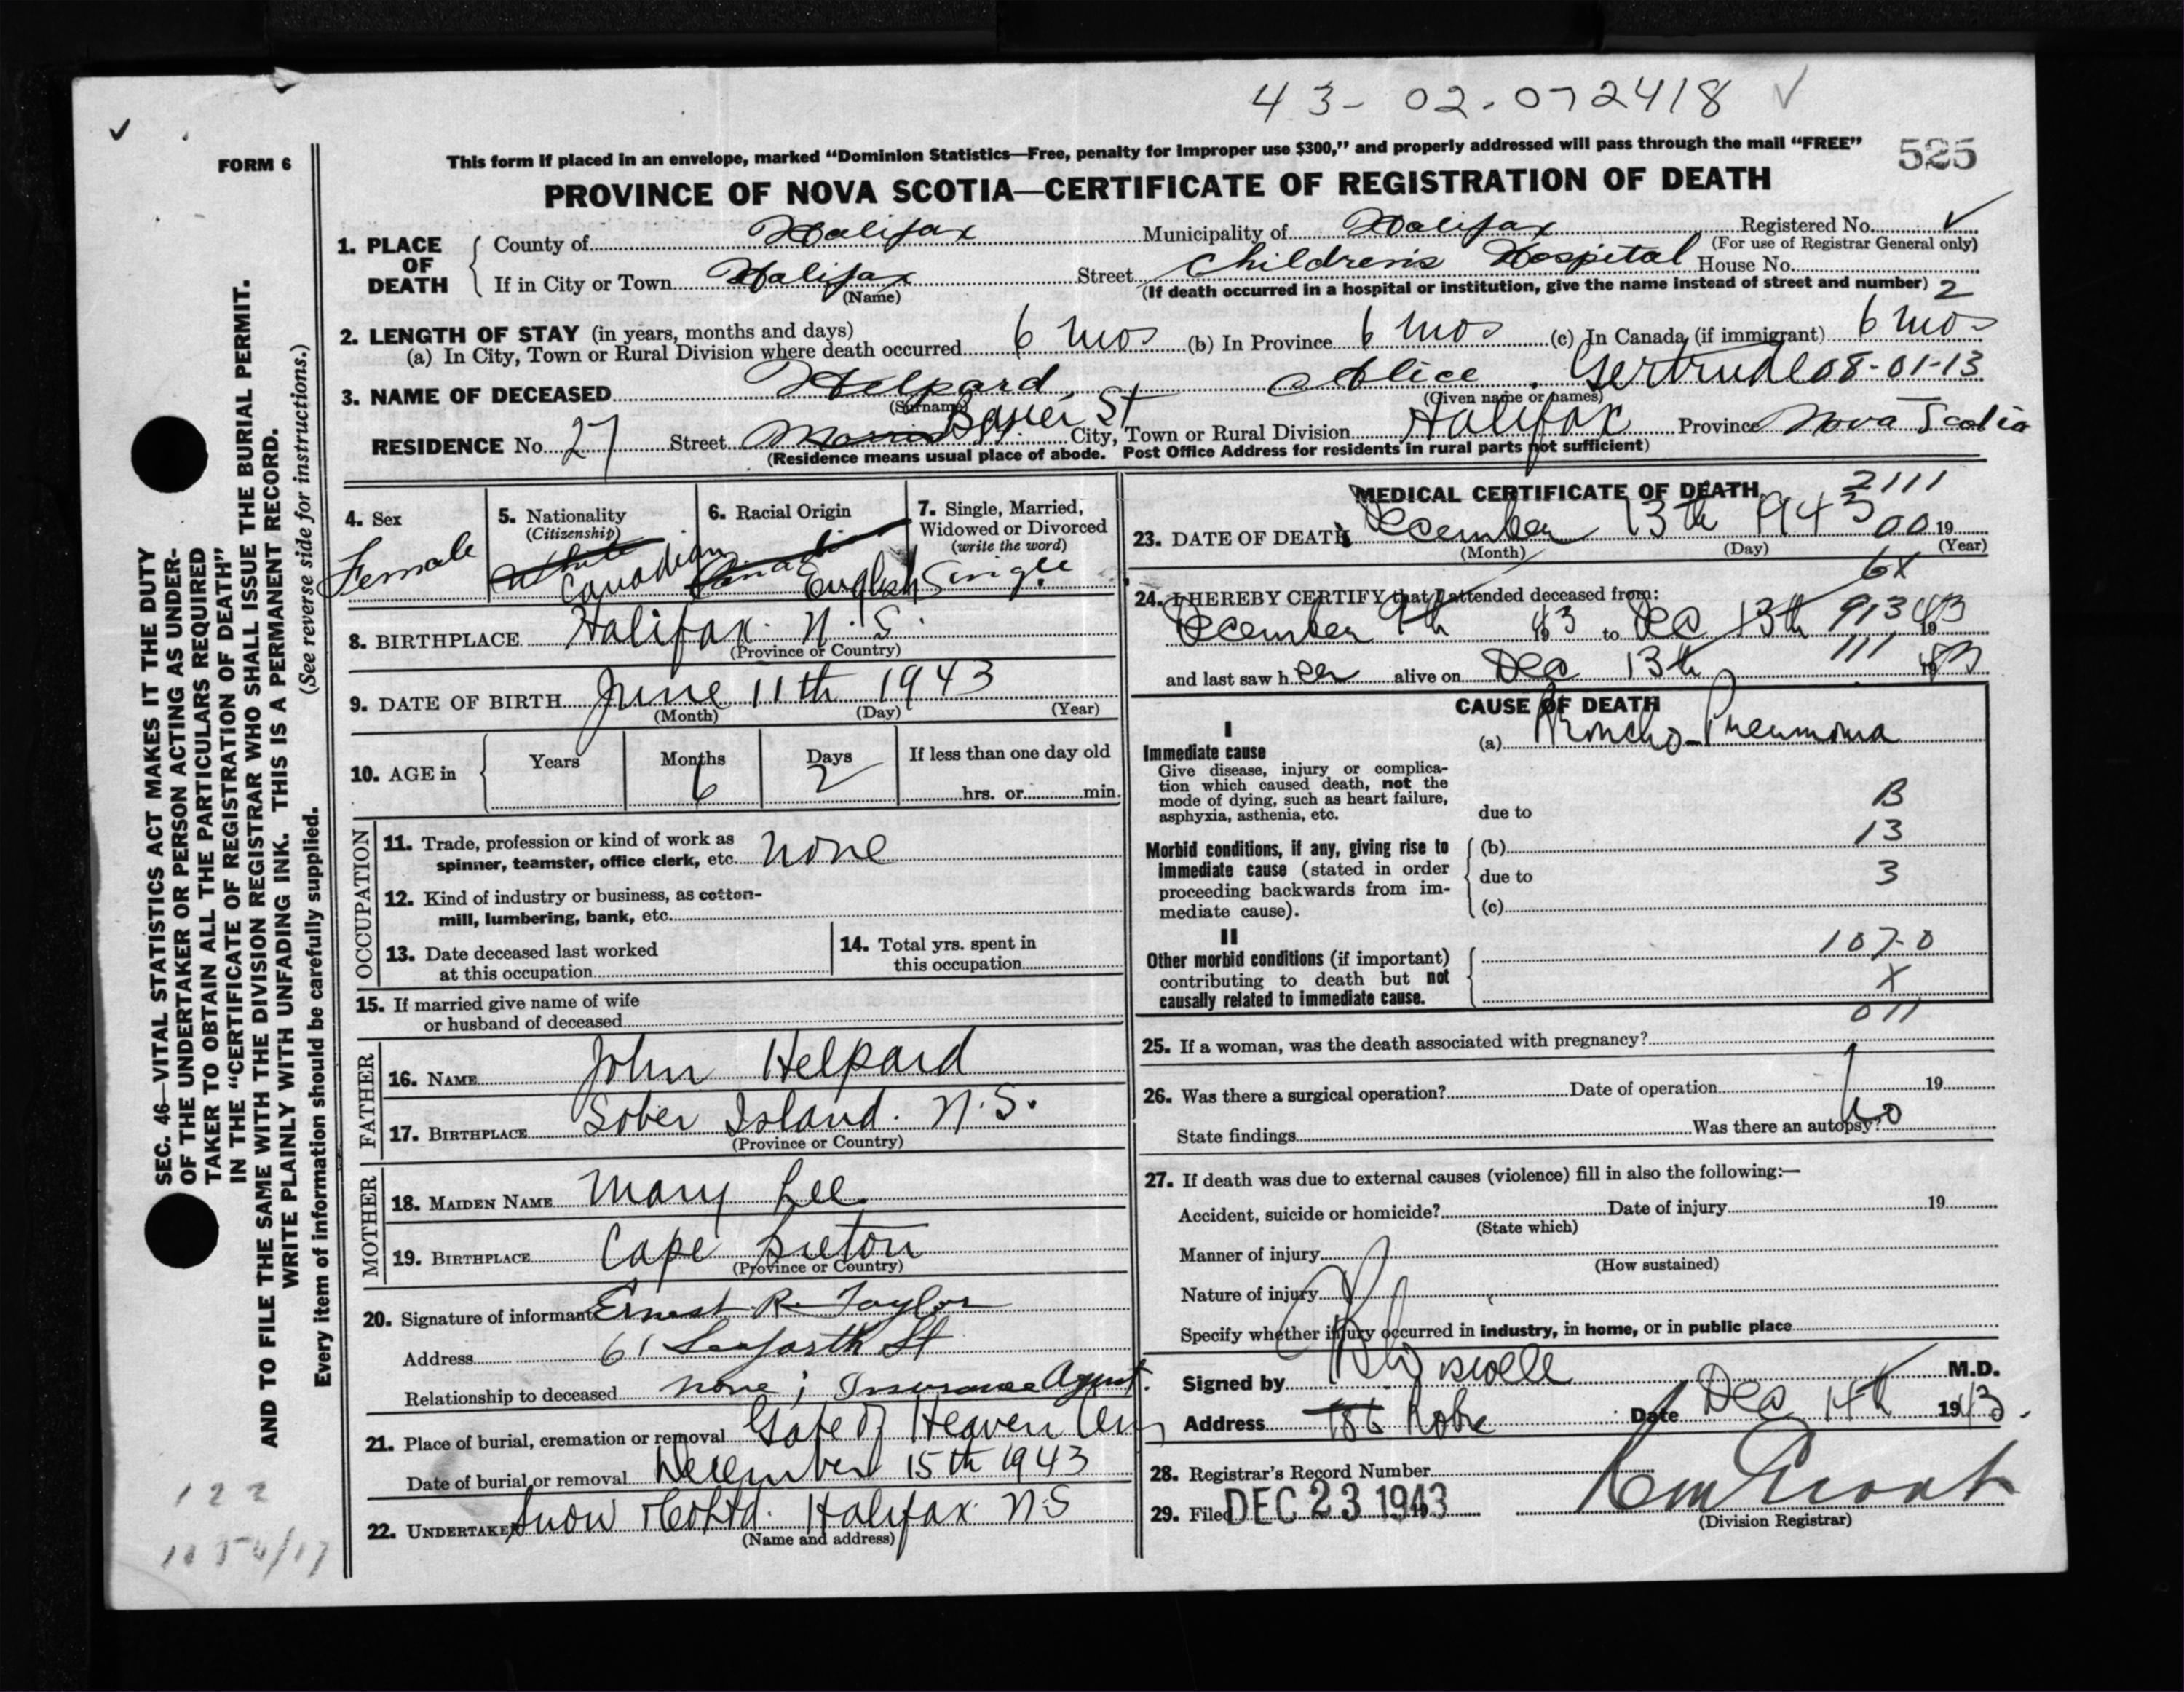 43-02-072418 ✓
✓
FORM 6
This form if placed in an envelope, marked “Dominion Statistics—Free, penalty for improper use $300,” and properly addressed will pass through the mail “FREE”
525
PROVINCE OF NOVA SCOTIA—CERTIFICATE OF REGISTRATION OF DEATH
1. PLACE OF DEATH
County of Halifax Municipality of Halifax Registered No. ✓
(For use of Registrar General only)
If in City or Town Halifax Street Children's Hospital House No.
(Name) (If death occurred in a hospital or institution, give the name instead of street and number) 2
2. LENGTH OF STAY (in years, months and days)
(a) In City, Town or Rural Division where death occurred 6 mos (b) In Province 6 mos (c) In Canada (if immigrant) 6 mos
3. NAME OF DECEASED Helpard Alice Gertrude 08-01-13
(Surname) (Given name or names)
RESIDENCE No. 27 Street St City, Town or Rural Division Halifax Province Nova Scotia
(Residence means usual place of abode. Post Office Address for residents in rural parts not sufficient)
4. Sex
Female
5. Nationality
(Citizenship)
White
Canadian
6. Racial Origin
Canadian
English
7. Single, Married,
Widowed or Divorced
(write the word)
Single
8. BIRTHPLACE Halifax. N.S.
(Province or Country)
9. DATE OF BIRTH June 11th 1943
(Month) (Day) (Year)
10. AGE in
Years Months Days If less than one day old
6 2 hrs. or min.
OCCUPATION
11. Trade, profession or kind of work as
spinner, teamster, office clerk, etc. none
12. Kind of industry or business, as cotton-
mill, lumbering, bank, etc.
13. Date deceased last worked
at this occupation
14. Total yrs. spent in
this occupation
15. If married give name of wife
or husband of deceased
FATHER
16. NAME John Helpard
17. BIRTHPLACE Sober Island. N.S.
(Province or Country)
MOTHER
18. MAIDEN NAME Mary Lee
19. BIRTHPLACE Cape Breton
(Province or Country)
20. Signature of informant Ernest R. Taylor
Address 61 Seaforth St
Relationship to deceased none; Insurance Agent.
21. Place of burial, cremation or removal Gate of Heaven Cem
Date of burial or removal December 15th 1943
22. UNDERTAKER Snow & Co Ltd. Halifax N.S
(Name and address)
MEDICAL CERTIFICATE OF DEATH
2111
23. DATE OF DEATH December 13th 1943 00 19
(Month) (Day) (Year)
6X
24. I HEREBY CERTIFY that I attended deceased from:
December 9th 1943 to Dec 13th 913 1943
111
and last saw h er alive on Dec 13th 1943
CAUSE OF DEATH
I
Immediate cause
Give disease, injury or complica-
tion which caused death, not the
mode of dying, such as heart failure,
asphyxia, asthenia, etc.
(a) Broncho-Pneumonia
B
due to
13
Morbid conditions, if any, giving rise to
immediate cause (stated in order
proceeding backwards from im-
mediate cause).
(b)
due to 3
(c)
II
Other morbid conditions (if important)
contributing to death but not
causally related to immediate cause.
107-0
X
011
25. If a woman, was the death associated with pregnancy?
26. Was there a surgical operation? Date of operation 19
State findings Was there an autopsy? No
27. If death was due to external causes (violence) fill in also the following:—
Accident, suicide or homicide? Date of injury 19
(State which)
Manner of injury
(How sustained)
Nature of injury
Specify whether injury occurred in industry, in home, or in public place
Signed by M.D.
Address 186 Robie Date Dec 14th 1943.
28. Registrar's Record Number
29. Filed DEC 23 1943
(Division Registrar)
SEC. 46—VITAL STATISTICS ACT MAKES IT THE DUTY
OF THE UNDERTAKER OR PERSON ACTING AS UNDER-
TAKER TO OBTAIN ALL THE PARTICULARS REQUIRED
IN THE “CERTIFICATE OF REGISTRATION OF DEATH”
AND TO FILE THE SAME WITH THE DIVISION REGISTRAR WHO SHALL ISSUE THE BURIAL PERMIT.
WRITE PLAINLY WITH UNFADING INK. THIS IS A PERMANENT RECORD.
Every item of information should be carefully supplied. (See reverse side for instructions.)
122